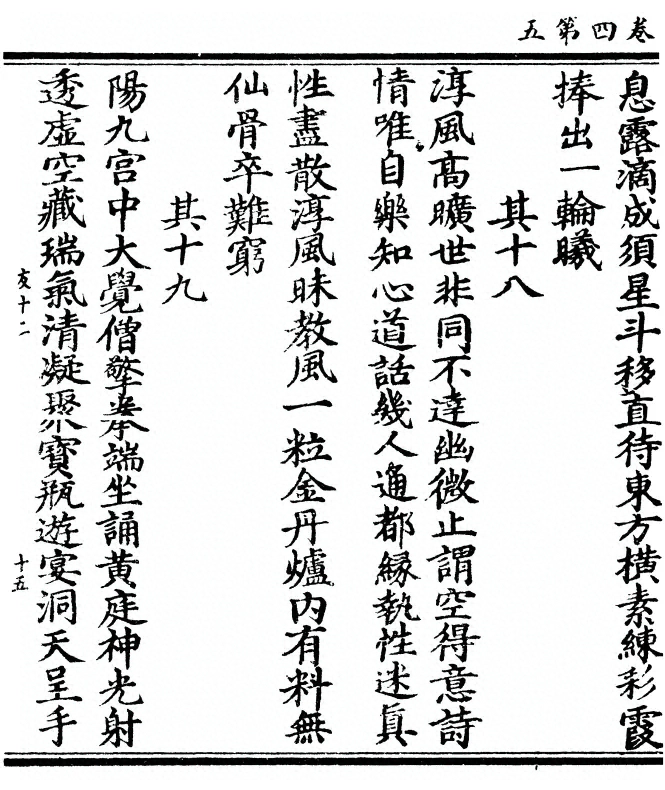 卷四第五
息露滴成須星斗移直待東方橫素練彩霞
捧出一輪曦
其十八
淳風高曠世非同不達幽微止謂空得意詩
情唯自樂知心道話幾人通都緣執性迷眞
性盡散淳風昧教風一粒金丹爐內有料無
仙骨卒難窮
其十九
陽九宮中大覺僧擎拳端坐誦黃庭神光射
透虛空藏瑞氣清凝聚寶瓶遊宴洞天呈手
亥十二
十五